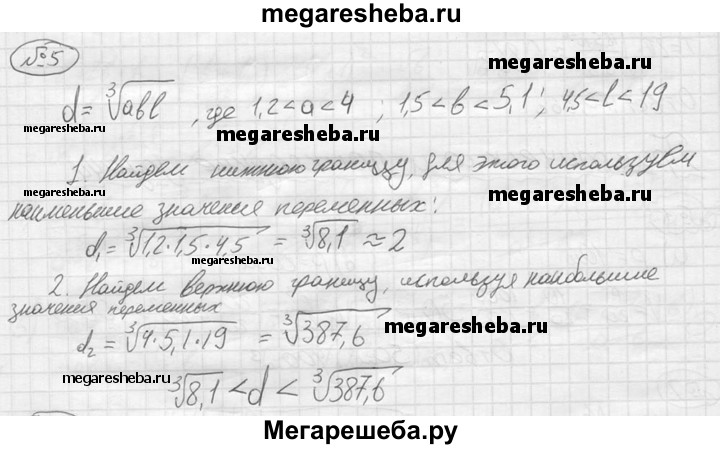 megaresheba.ru
№5
megaresheba.ru
d = ∛abl, где 1,2 < a < 4; 1,5 < b < 5,1; 4,5 < l < 19
megaresheba.ru megaresheba.ru
1. Найдем нижнюю границу, для этого используем
megaresheba.ru megaresheba.ru
наименьшие значения переменных:
d₁ = ∛1,2·1,5·4,5 = ∛8,1 ≈ 2
megaresheba.ru
2. Найдем верхнюю границу, используя наибольшие
значения переменных
d₂ = ∛4·5,1·19 = ∛387,6
megaresheba.ru
megaresheba.ru
∛8,1 < d < ∛387,6
Мегарешеба.ру